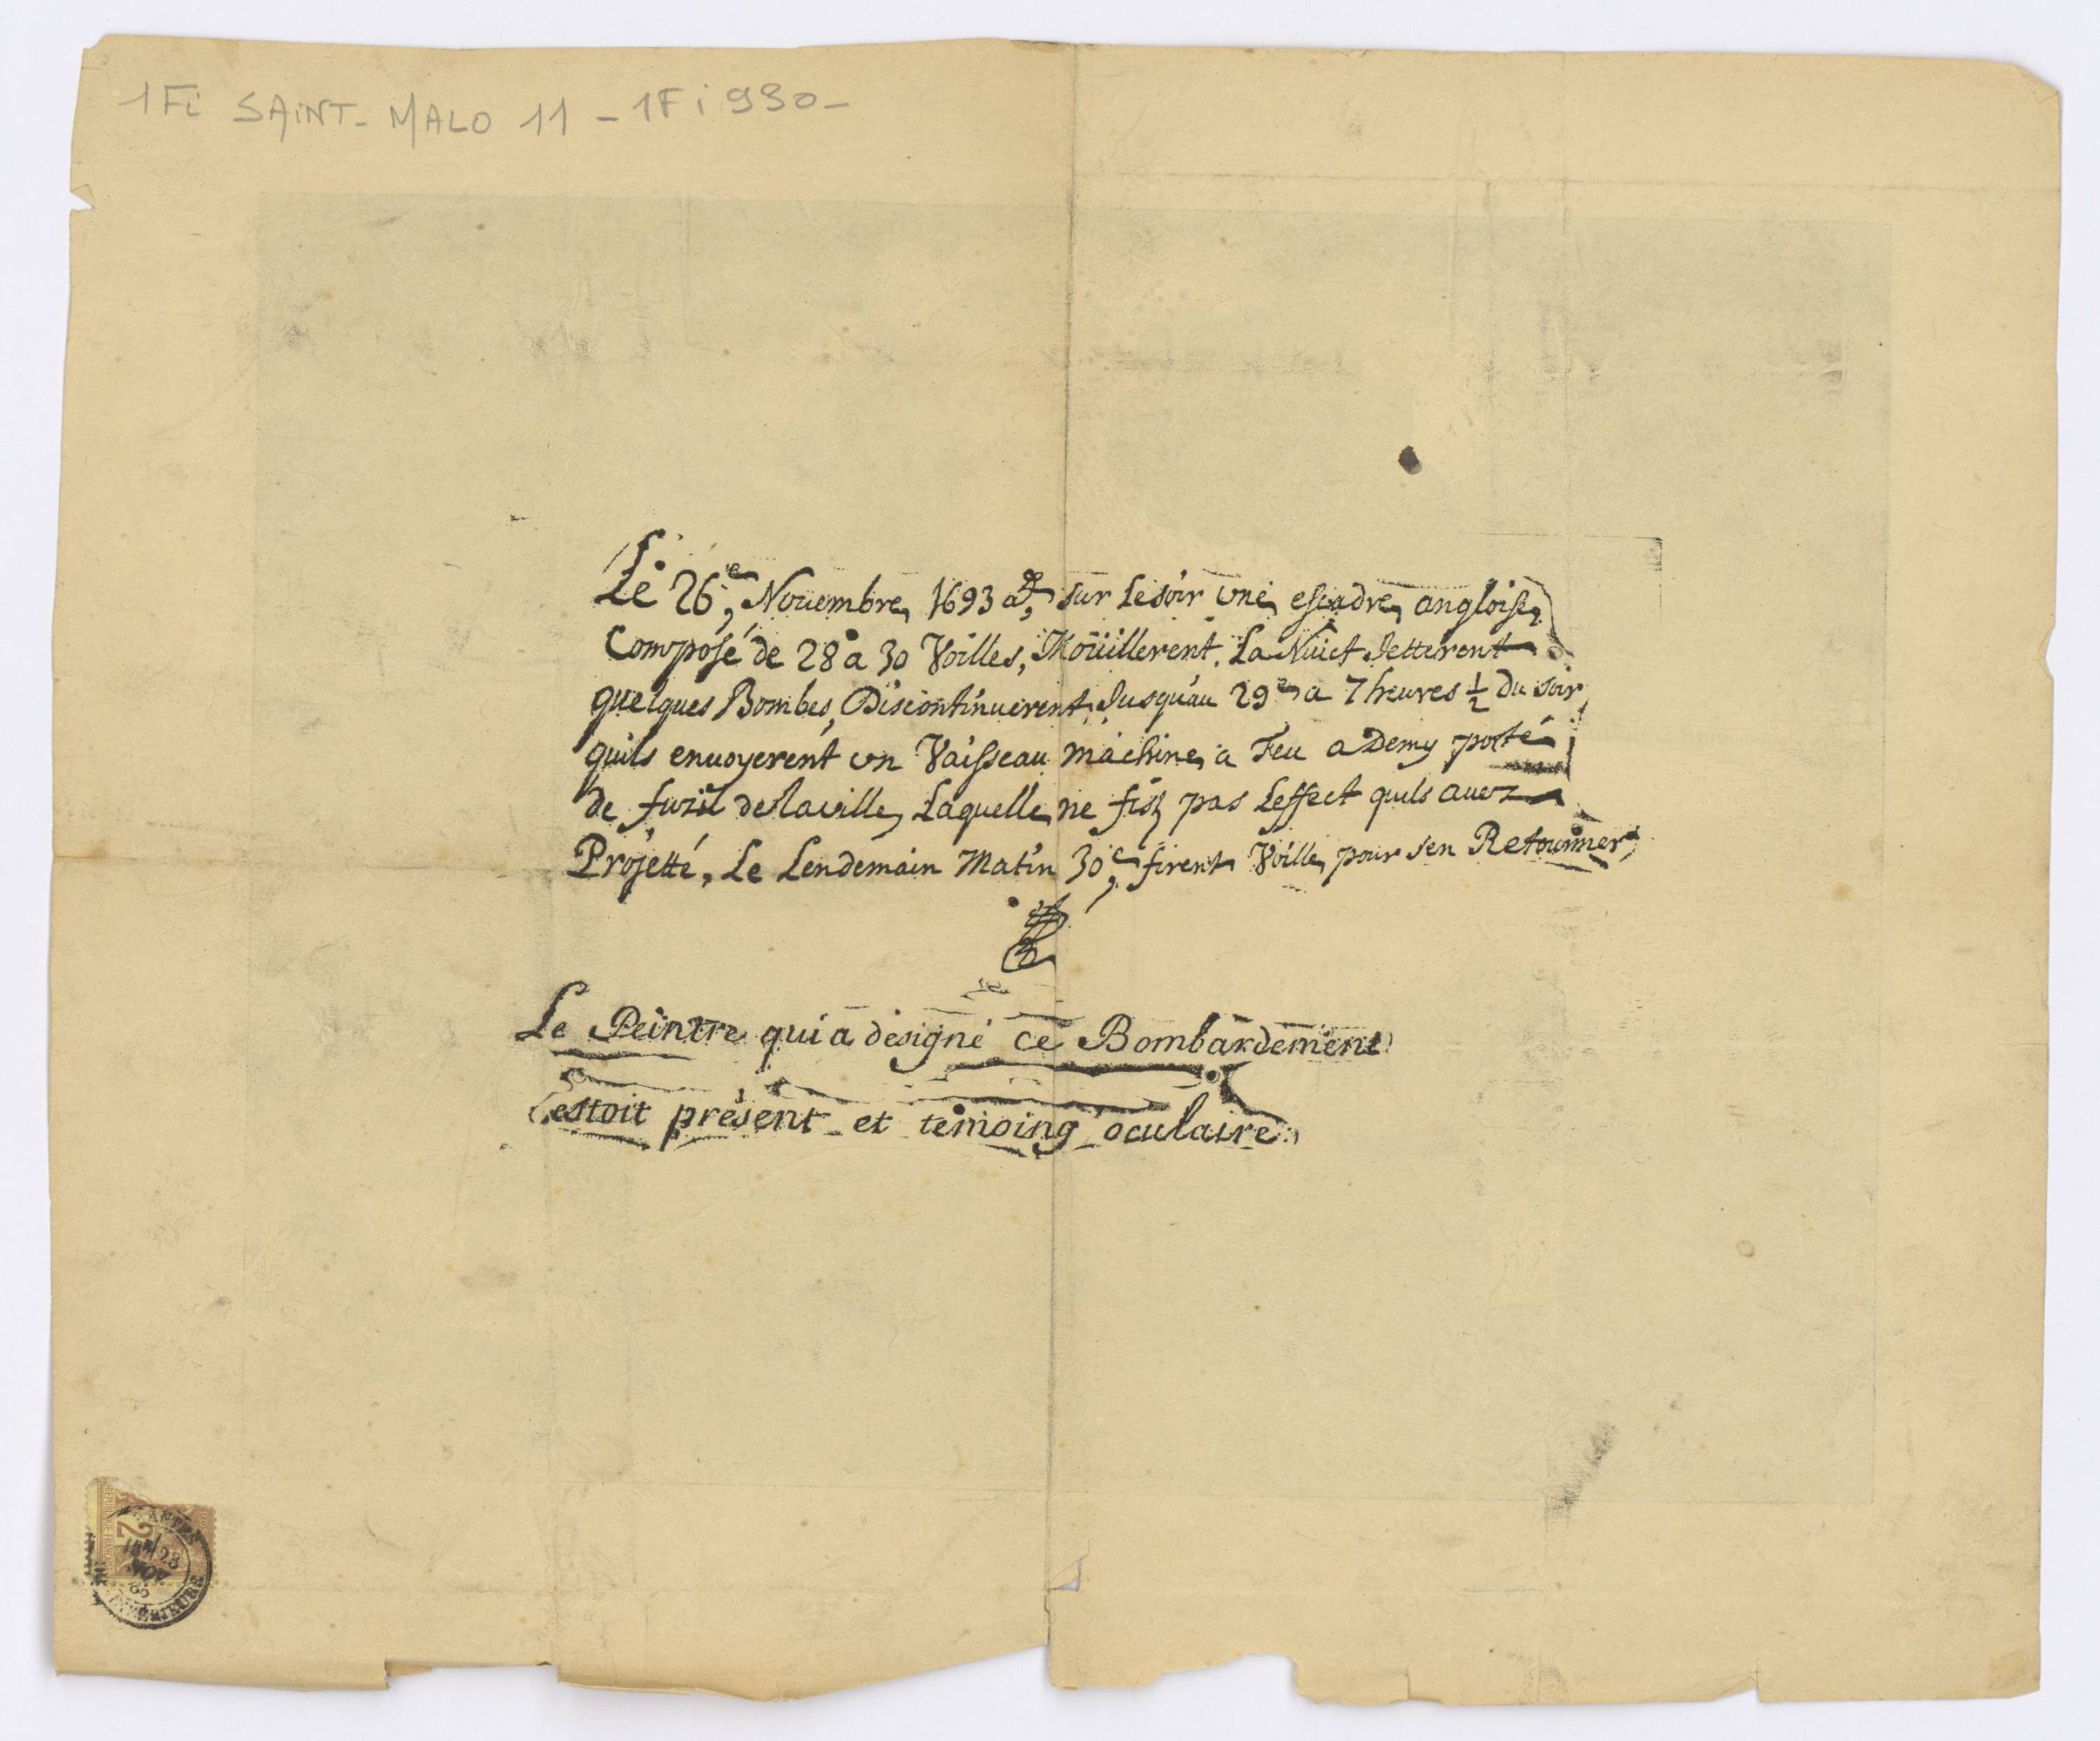 1Fi SAINT-MALO 11 - 1Fi 930-
Le 26e, Nouembre 1693 sur Lesoir vne escadre angloise
Composé de 28 a 30 Voilles, Moüillerent. La Nuict Jetterent
quelques Bombes, Discontinuerent Jusquau 29e a 7 heures ½ du soir
quils enuoyerent vn Vaisseau machine a Feu a Demy porté
de fuzil de laville, Laquelle ne fist pas Leffect quils auoz
Projetté, Le Lendemain Matin 30e, firent Voille pour sen Retourner
Le Peintre qui a designé ce Bombardement
estoit present et temoing oculaire
2
28
NOV